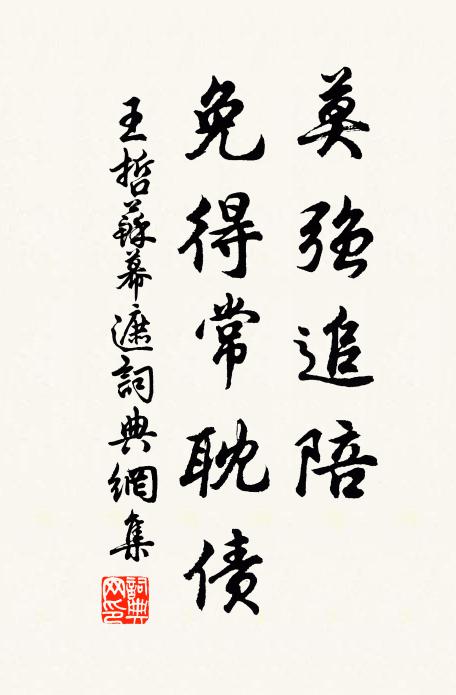 莫強追陪
免得常耽債
王哲蘇幕遮詞典網集
詞典網印